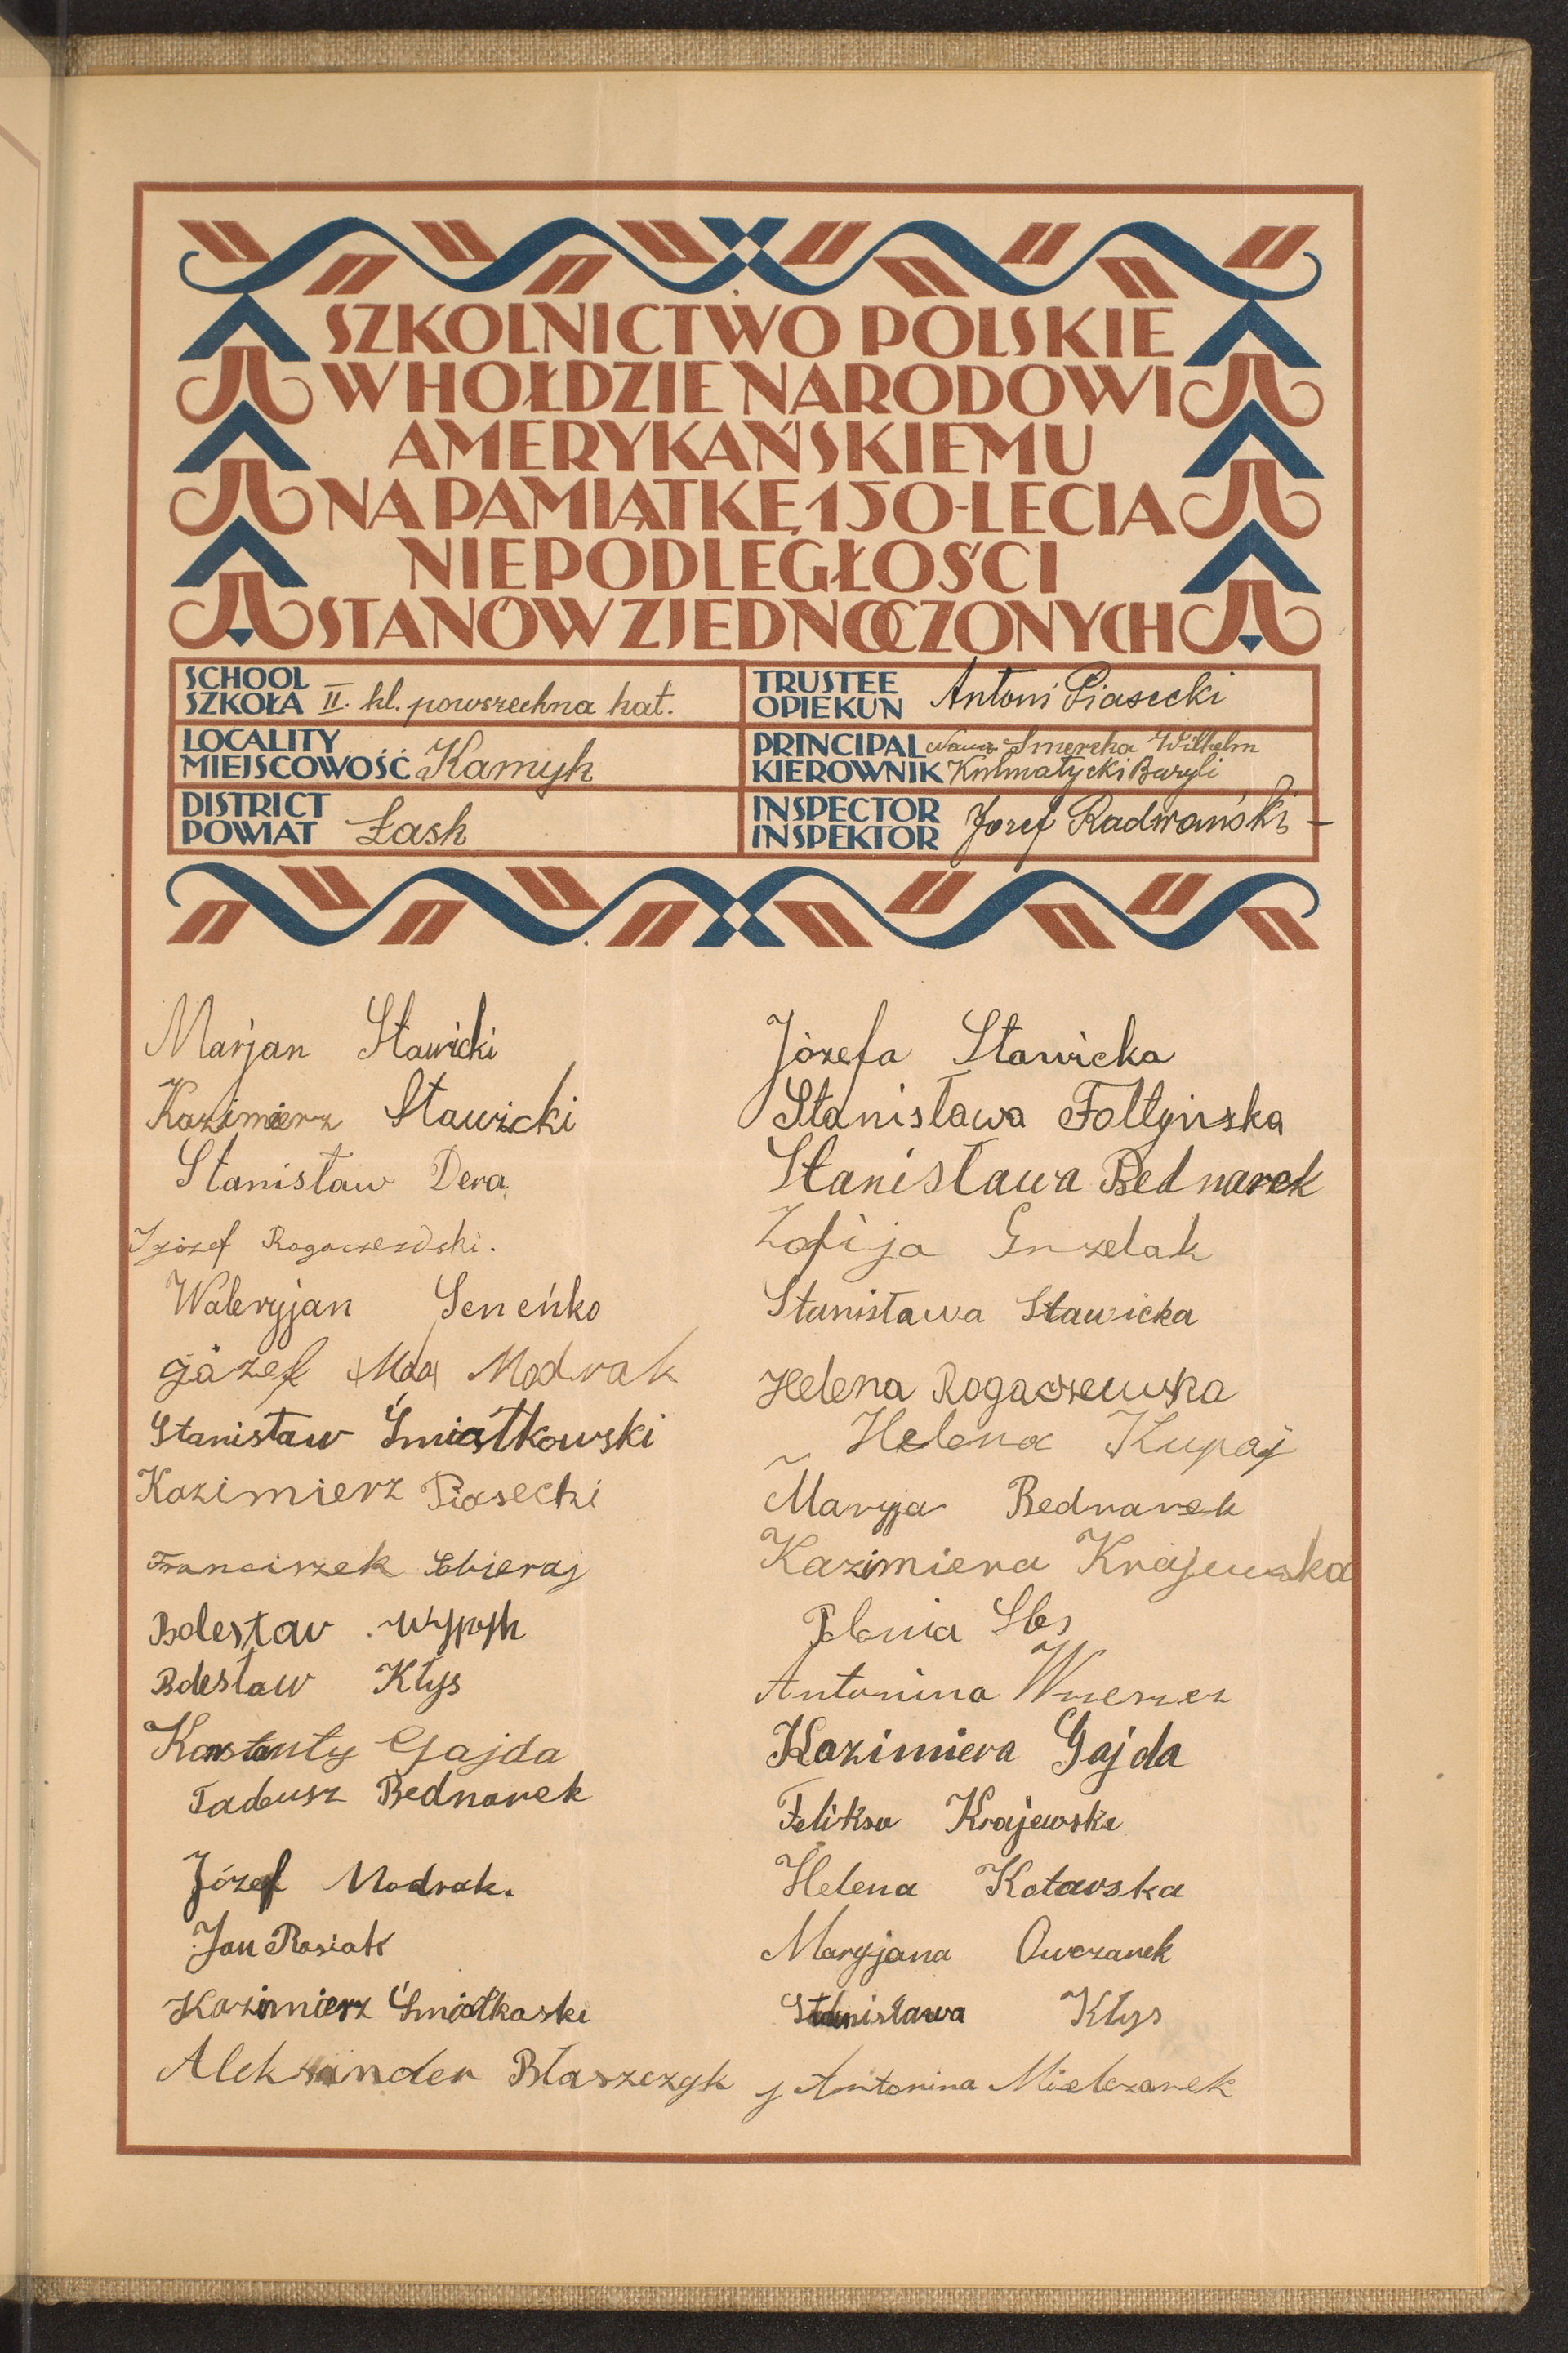 SZKOLNICTWO POLSKIE
W HOŁDZIE NARODOWI
AMERYKAŃSKIEMU
NA PAMIĄTKĘ 150-LECIA
NIEPODLEGŁOŚCI
STANÓW ZJEDNOCZONYCH
SCHOOL
SZKOŁA II. kl. powszechna kat.
TRUSTEE
OPIEKUN Antoni Piasecki
LOCALITY
MIEJSCOWOŚĆ Kamyk
PRINCIPAL Smerczka Wilhelm
KIEROWNIK Kulmatycki Bazyli
DISTRICT
POWIAT Łask
INSPECTOR
INSPEKTOR Józef Radwański
Marjan Stawicki
Kazimierz Stawicki
Stanisław Dera
Jzózef Rogaczewski.
Waleryjan Seneńko
Józef Modrak
Stanisław Śmiatkowski
Kazimierz Piasecki
Franciszek Sobieraj
Bolesław Wypyh
Bolesław Kłys
Konstanty Gajda
Tadeusz Bednarek
Józef Modrak.
Jan Rosiak
Kazimierz Śmiatkoski
Aleksander Błaszczyk
Józefa Stawicka
Stanisława Foltyńska
Stanisława Bednarek
Zofija Grzelak
Stanisława Stawicka
Helena Rogaczewska
Helena Kupaj
Maryja Bednarek
Kazimiera Krajewska
Antonina Wrzeszcz
Kazimiera Gajda
Feliksa Krajewska
Helena Kotarska
Maryjana Owczarek
Stanisława Kłys
Antonina Mielczarek